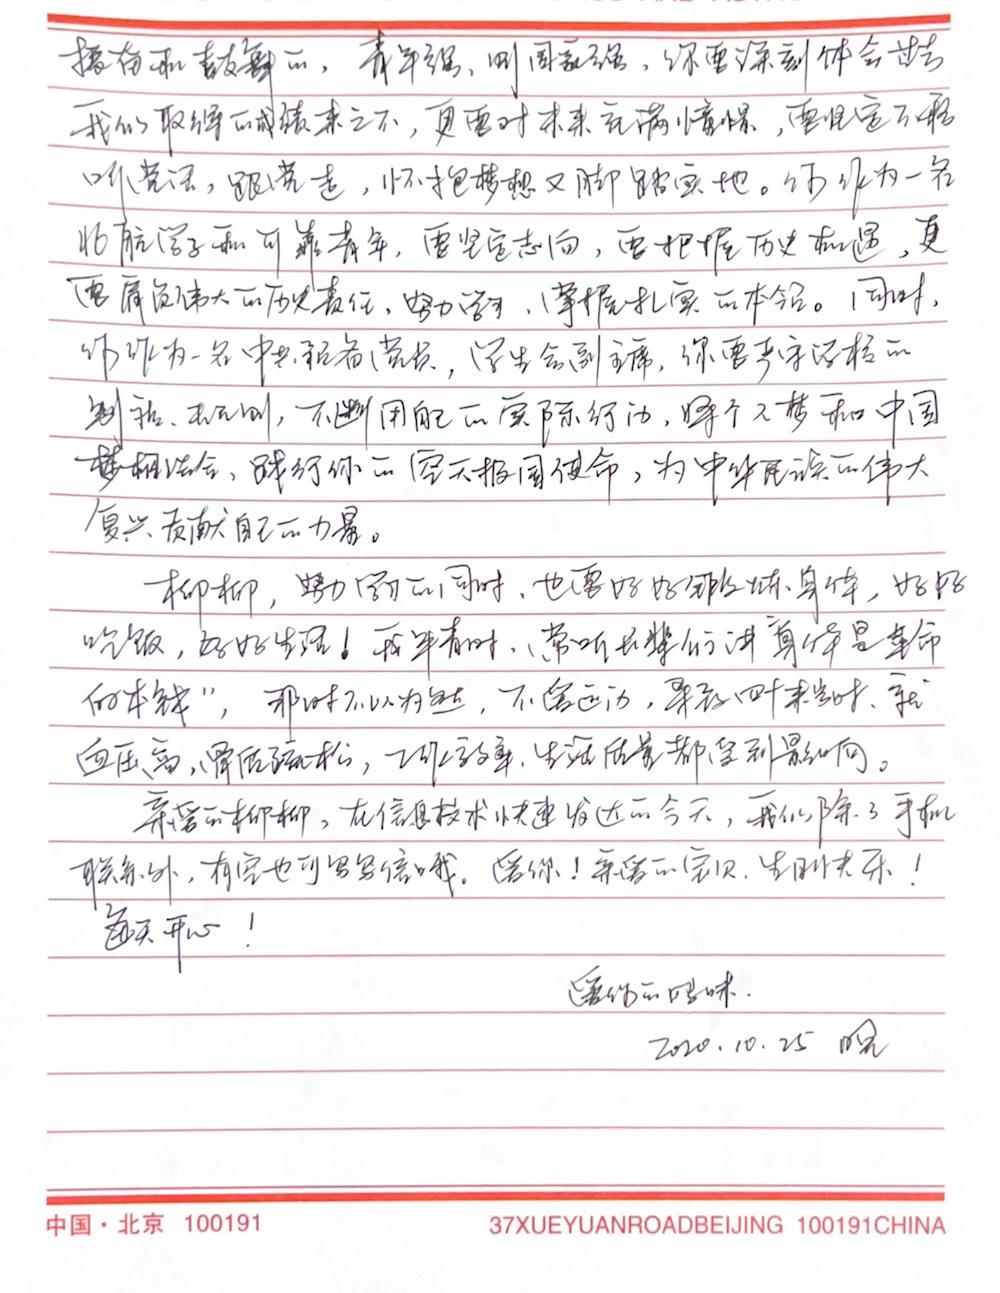 振奋和鼓舞的，青年强，则国家强，你要深刻体会过去
我们取得的成绩来之不，更要对未来充满憧憬，要坚定不移
听党话，跟党走，怀抱梦想又脚踏实地。你作为一名
北航学子和可靠青年，要坚定志向，要把握历史机遇，更
要肩负伟大的历史责任，努力学习，掌握扎实的本领。同时，
你作为一名中共预备党员，学生会副主席，你要严守学校的
制度、规则，不断用自己的实际行动，将个人梦和中国
梦相结合，践行你的空天报国使命，为中华民族的伟大
复兴贡献自己的力量。
柳柳，努力学习的同时，也要好好锻炼身体，好好
吃饭，好好生活！我年青时，常听长辈们讲"身体是革命
的本钱"，那时不以为然，不爱运动，导致四十来岁时、就
血压高，骨质疏松，工作效率、生活质量都受到影响。
亲爱的柳柳，在信息技术快速发达的今天，我们除了手机
联系外，有空也可写写信哦。爱你！亲爱的宝贝，生日快乐！
每天开心！
爱你的妈咪.
2020.10.25 晚
中国·北京 100191
37XUEYUANROADBEIJING 100191CHINA